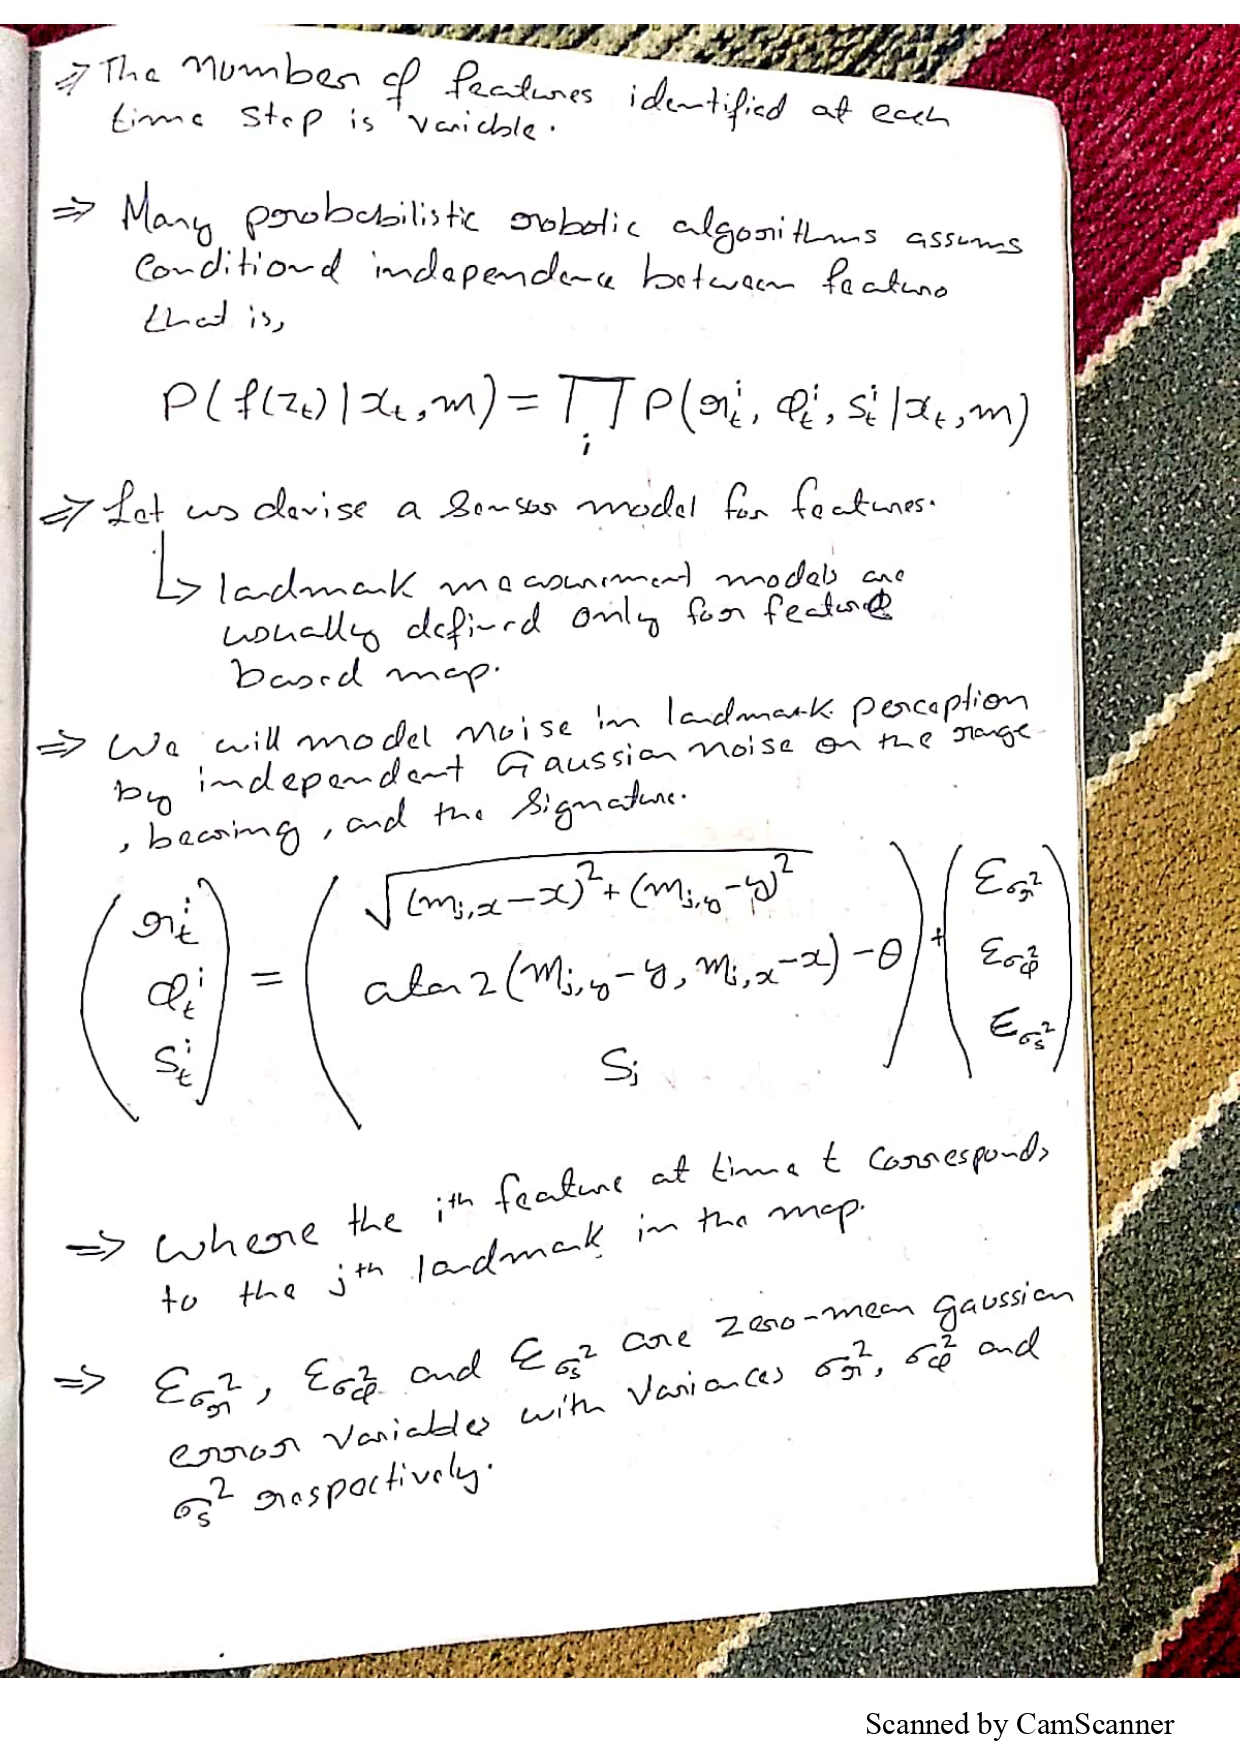 ⇒ The number of features identified at each
time step is variable.
⇒ Many probabilistic robotic algorithms assums
Conditional independence between feature
that is,
P(f(z_t) | x_t, m) = ∏_i P(r_t^i, φ_t^i, s_t^i | x_t, m)
⇒ Let us devise a sensor model for features.
↳ landmark measurement models are
usually defined only for feature
based map.
⇒ We will model noise in landmark perception
by independent Gaussian noise on the range
, bearing, and the signature.
(r_t^i, φ_t^i, s_t^i) = (√((m_{j,x} − x)² + (m_{j,y} − y)²), atan2(m_{j,y} − y, m_{j,x} − x) − θ, S_j) + (ε_{σ_r²}, ε_{σ_φ²}, ε_{σ_s²})
⇒ where the i^th feature at time t corresponds
to the j^th landmark in the map.
⇒ ε_{σ_r²}, ε_{σ_φ²} and ε_{σ_s²} are zero-mean gaussian
error variables with variances σ_r², σ_φ² and
σ_s² respectively.
Scanned by CamScanner